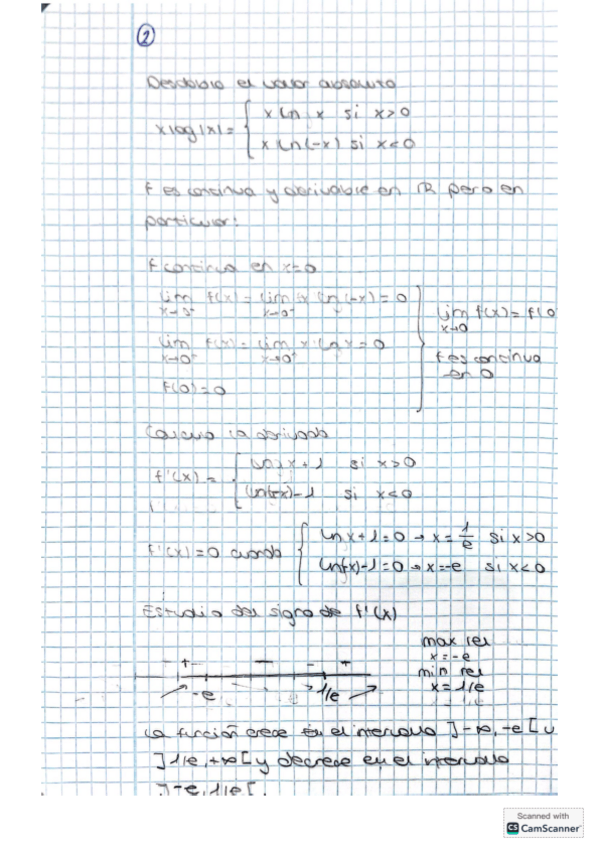 2
Desdoblo el valor absoluto
x log|x| = { x ln x si x>0
x ln(-x) si x<0
f es continua y derivable en ℝ pero en
particular:
f continua en x=0
lim x→0⁻ f(x) = lim x→0⁻ x ln(-x) = 0
lim x→0⁺ f(x) = lim x→0⁺ x ln x = 0
f(0)=0
lim x→0 f(x) = f(0
f es continua
en 0
Calculo la derivada
f'(x) = { ln x + 1 si x>0
ln(-x)-1 si x<0
f'(x)=0 cuando { ln x+1=0 → x = 1/e si x>0
ln(-x)-1=0 → x=-e si x<0
Estudio del signo de f'(x)
+ - - - +
-e 1/e
max rel
x=-e
min rel
x=1/e
La función crece en el intervalo ]-∞,-e[ ∪
]1/e,+∞[ y decrece en el intervalo
]-e,1/e[.
Scanned with
CS CamScanner